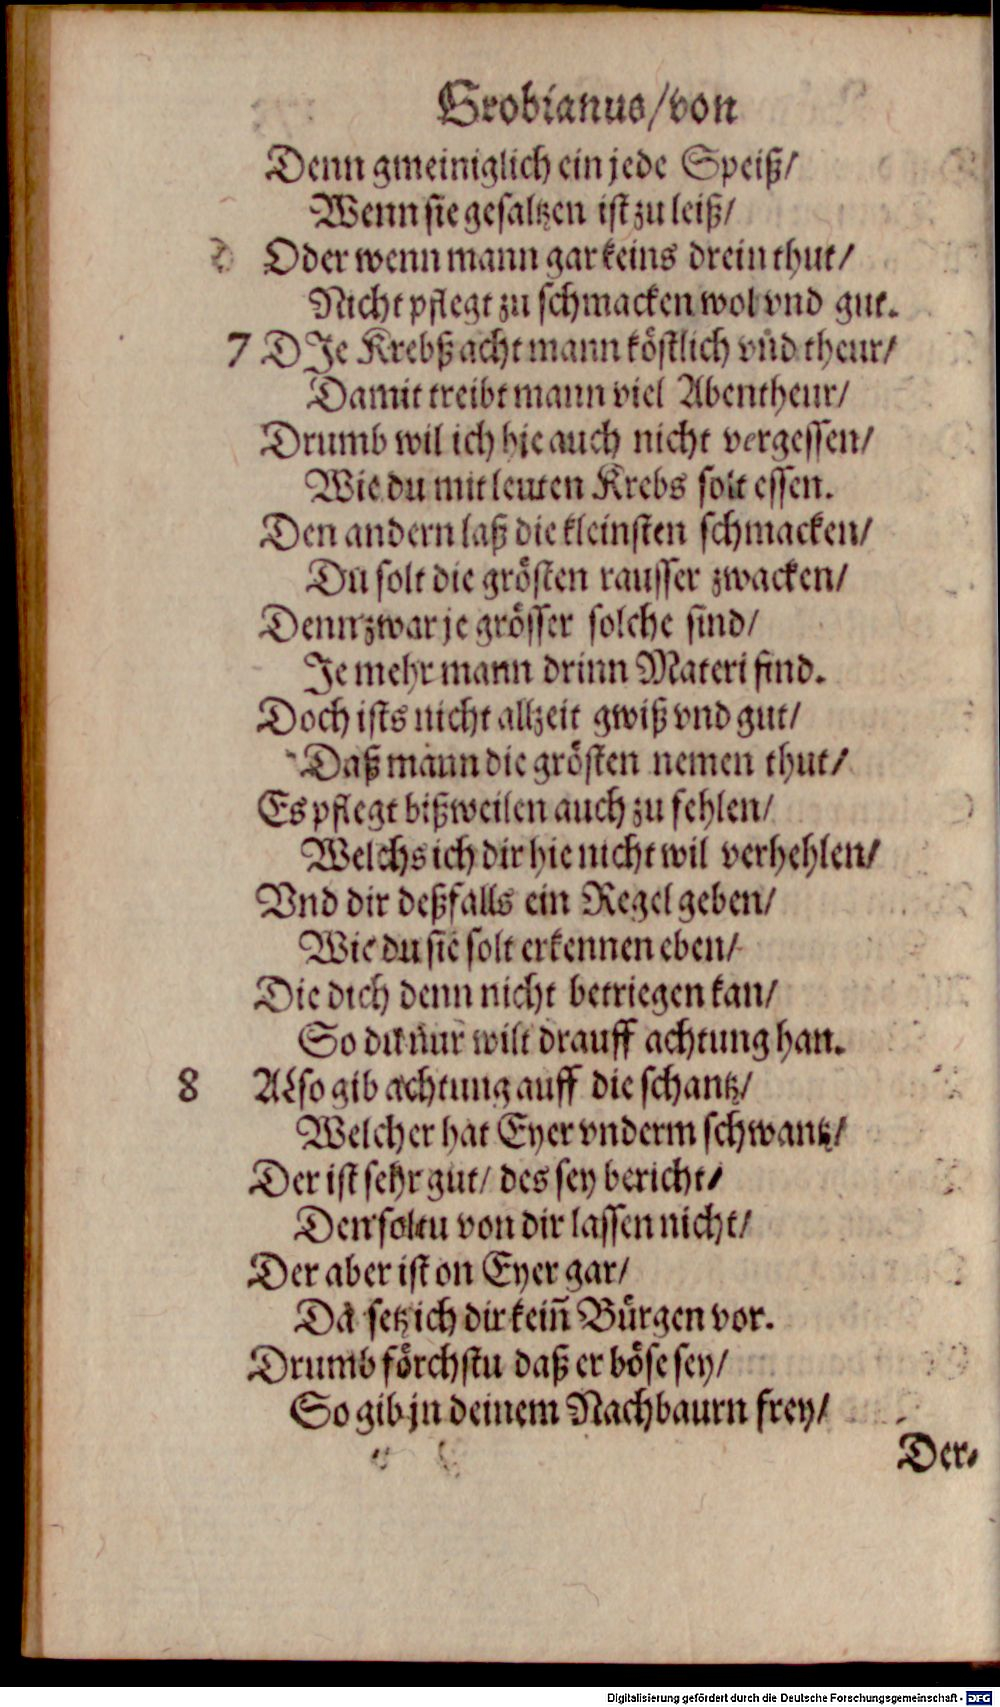 Grobianus/von
Denn gmeiniglich ein jede Speiß/
Wenn sie gesaltzen ist zu leiß/
Oder wenn mann gar keins drein thut/
Nicht pflegt zu schmacken wol vnd gut.
7 DIe Krebß acht mann köstlich vnd theur/
Damit treibt mann viel Abentheur/
Drumb wil ich hie auch nicht vergessen/
Wie du mit leuten Krebs solt essen.
Den andern laß die kleinsten schmacken/
Du solt die grösten rausser zwacken/
Denn zwar je grösser solche sind/
Je mehr mann drinn Materi find.
Doch ists nicht allzeit gwiß vnd gut/
Daß mann die grösten nemen thut/
Es pflegt bißweilen auch zu fehlen/
Welchs ich dir hie nicht wil verhehlen/
Vnd dir deßfalls ein Regel geben/
Wie du sie solt erkennen eben/
Die dich denn nicht betriegen kan/
So du nur wilt drauff achtung han.
8 ALso gib achtung auff die schantz/
Welcher hat Eyer vnderm schwantz/
Der ist sehr gut/ des sey bericht/
Den soltu von dir lassen nicht/
Der aber ist on Eyer gar/
Da setz ich dir kein̄ Bürgen vor.
Drumb förchstu daß er böse sey/
So gib jn deinem Nachbaurn frey/
Der-
Digitalisierung gefördert durch die Deutsche Forschungsgemeinschaft - DFG